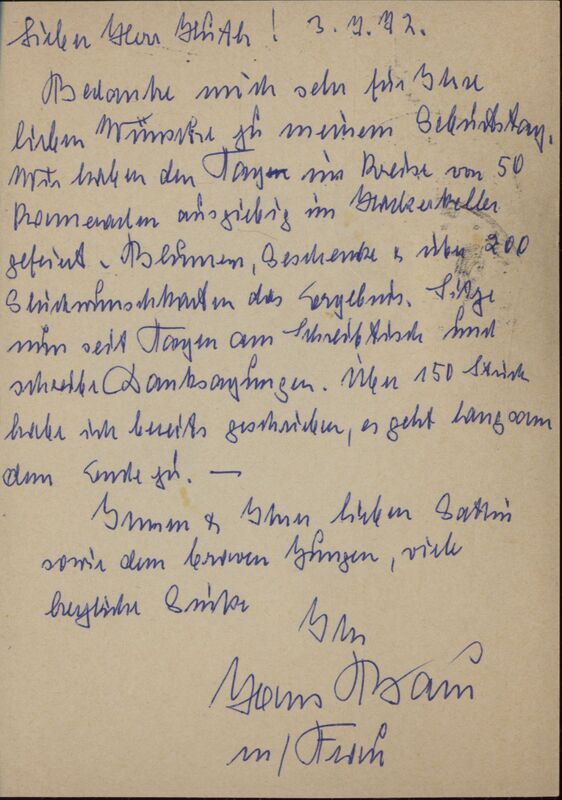 Lieber Herr Huth! 3.7.72.
Bedanke mich sehr für Ihre
lieben Wünsche zu meinem Geburtstag.
Wir haben den Tag im Kreise von 50
Kameraden ausgiebig im Hackerkeller
gefeiert. Blumen, Geschenke & über 200
Glückwunschkarten das Ergebnis. Sitze
nun seit Tagen am Schreibtisch und
schreibe Danksagungen. Über 150 Stück
habe ich bereits geschrieben, es geht langsam
dem Ende zu. —
Ihnen & Ihrer lieben Gattin
sowie dem braven Jungen, viele
herzliche Grüße
Ihr
Hans Baur
m/Frau